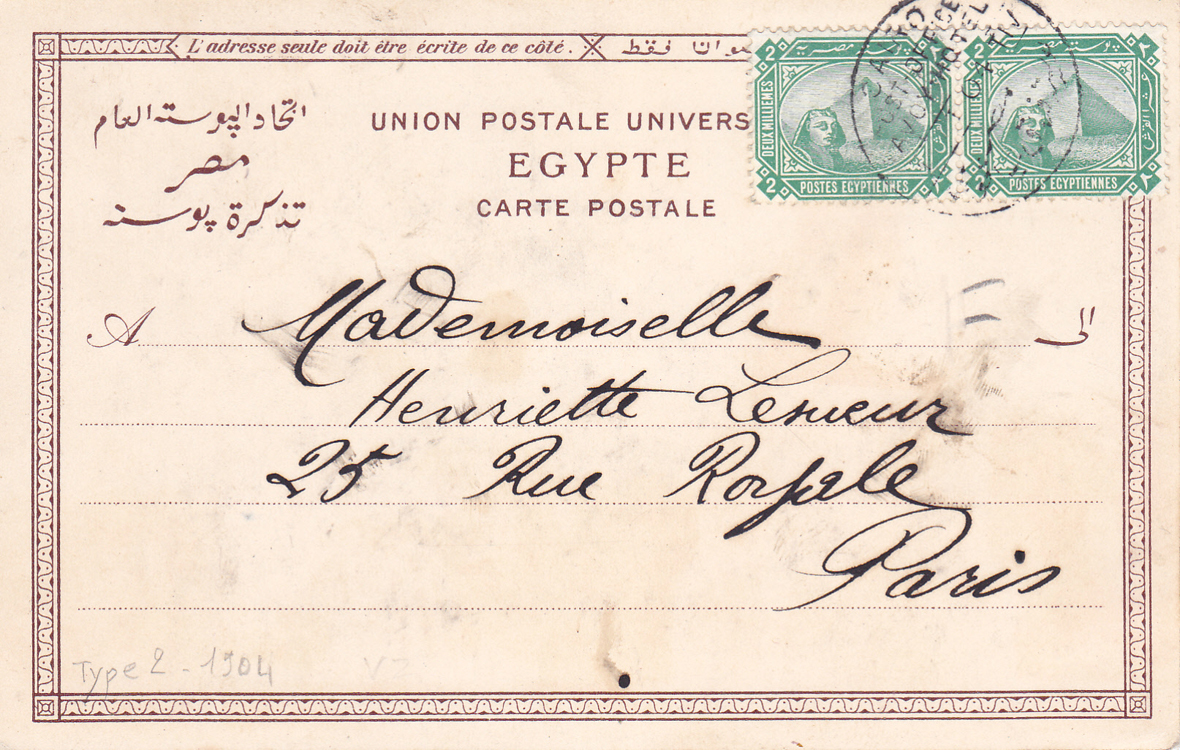 L'adresse seule doit être écrite de ce côté. فقط
اتحاد البوسته العام
مصر
تذكرة بوسته
UNION POSTALE UNIVERS
EGYPTE
CARTE POSTALE
2 بوسته مصريه
DEUX MILLIEMES
2 POSTES EGYPTIENNES ٢
2 بوسته مصريه
DEUX MILLIEMES
2 POSTES EGYPTIENNES ٢
A Mademoiselle الى
Henriette Lesueur
25 Rue Royale
Paris
Type 2 - 1904